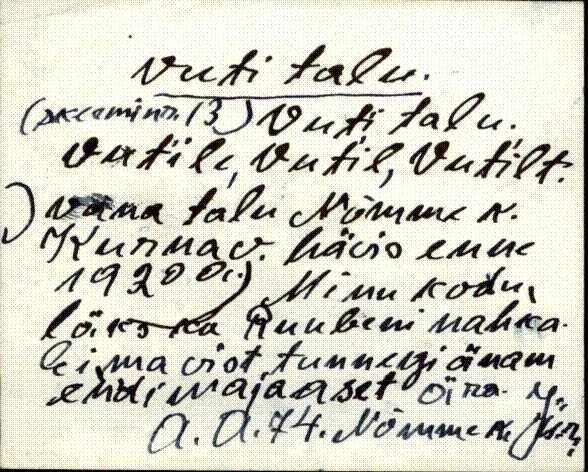 Vuti talu.
(skeemi nr. 13) Vuti, talu,
Vutile, Vutil, Vutilt.
) vana talu Nõmme k.
Kurna v. hävis enne
1920 a.) Minu kodu
läks ka Ruubeni nahka.
Ei ma vist tunnegi änam
endi majaaset ära.
A. A. 74. Nõmme k.